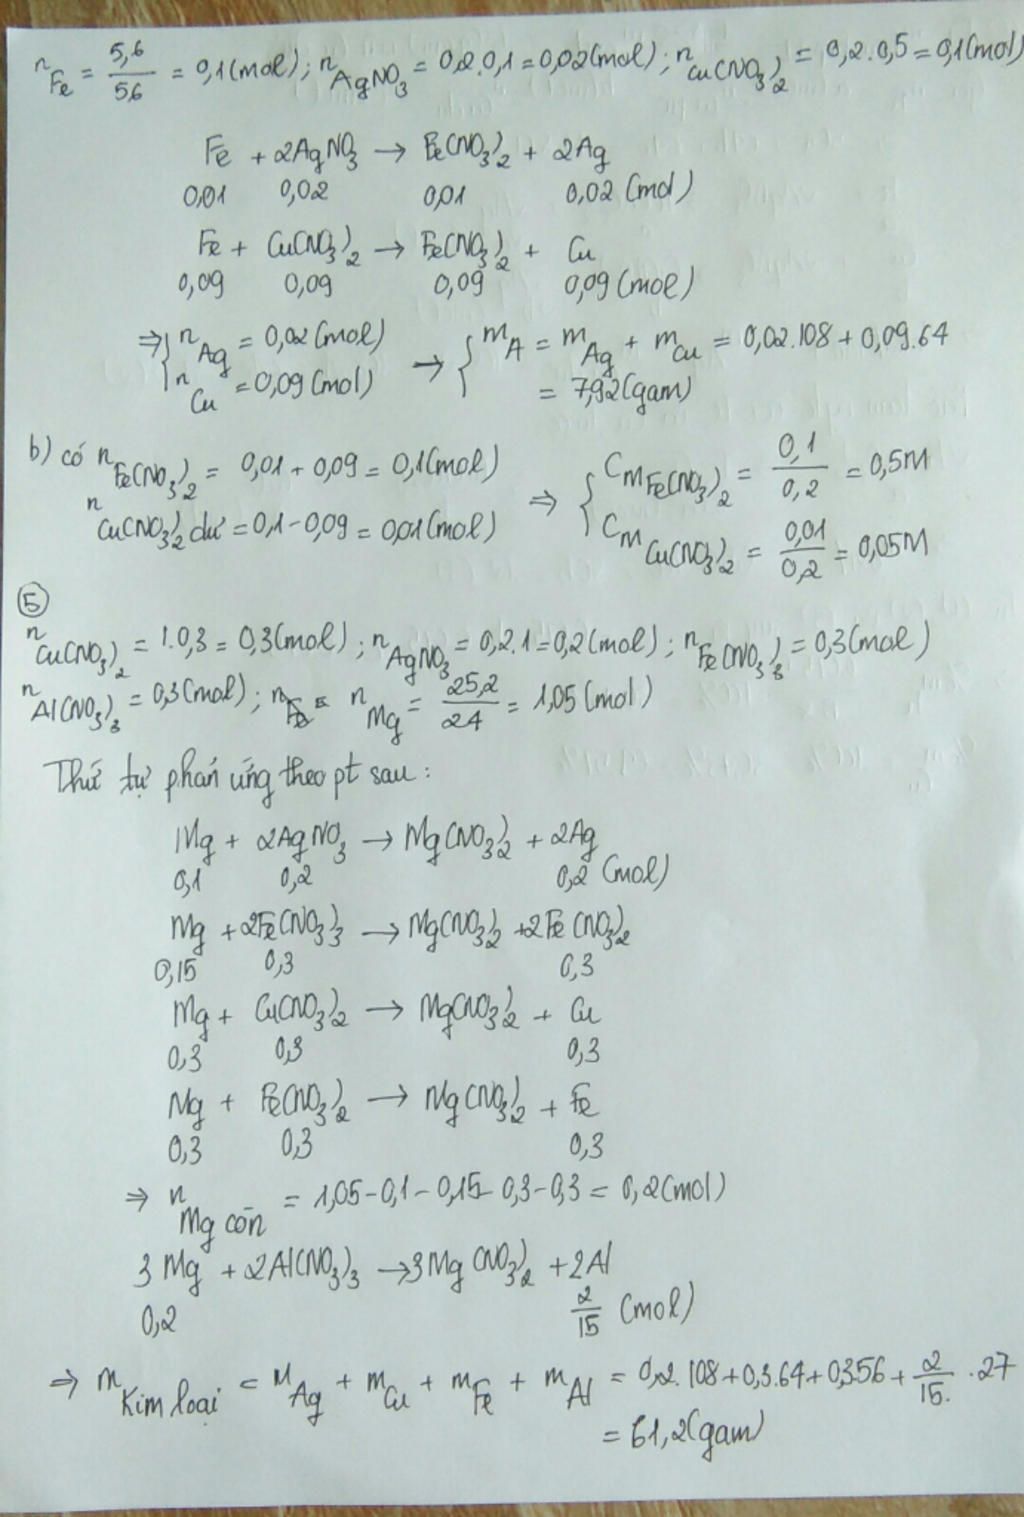 n_Fe = 5,6/56 = 0,1(mol); n_AgNO₃ = 0,2.0,1 = 0,02(mol); n_Cu(NO₃)₂ = 0,2.0,5 = 0,1(mol)
Fe + 2AgNO₃ → Fe(NO₃)₂ + 2Ag
0,01 0,02 0,01 0,02 (mol)
Fe + Cu(NO₃)₂ → Fe(NO₃)₂ + Cu
0,09 0,09 0,09 0,09 (mol)
⇒ { n_Ag = 0,02(mol) → { m_A = m_Ag + m_Cu = 0,02.108 + 0,09.64
n_Cu = 0,09(mol) = 7,92(gam)
b) có n_Fe(NO₃)₂ = 0,01 + 0,09 = 0,1(mol) ⇒ { C_M Fe(NO₃)₂ = 0,1/0,2 = 0,5M
n_Cu(NO₃)₂ dư = 0,1 - 0,09 = 0,01(mol) C_M Cu(NO₃)₂ = 0,01/0,2 = 0,05M
5
n_Cu(NO₃)₂ = 1.0,3 = 0,3(mol); n_AgNO₃ = 0,2.1 = 0,2(mol); n_Fe(NO₃)₃ = 0,3(mol)
n_Al(NO₃)₃ = 0,3(mol); n_Fe = n_Mg = 25,2/24 = 1,05(mol)
Thứ tự phản ứng theo pt sau:
Mg + 2AgNO₃ → Mg(NO₃)₂ + 2Ag
0,1 0,2 0,2 (mol)
Mg + 2Fe(NO₃)₃ → Mg(NO₃)₂ + 2Fe(NO₃)₂
0,15 0,3 0,3
Mg + Cu(NO₃)₂ → Mg(NO₃)₂ + Cu
0,3 0,3 0,3
Mg + Fe(NO₃)₂ → Mg(NO₃)₂ + Fe
0,3 0,3 0,3
⇒ n_Mg còn = 1,05 - 0,1 - 0,15 - 0,3 - 0,3 = 0,2(mol)
3Mg + 2Al(NO₃)₃ → 3Mg(NO₃)₂ + 2Al
0,2 2/15 (mol)
⇒ m_Kim loại = m_Ag + m_Cu + m_Fe + m_Al = 0,2.108 + 0,3.64 + 0,3.56 + 2/15.27
= 61,2(gam)